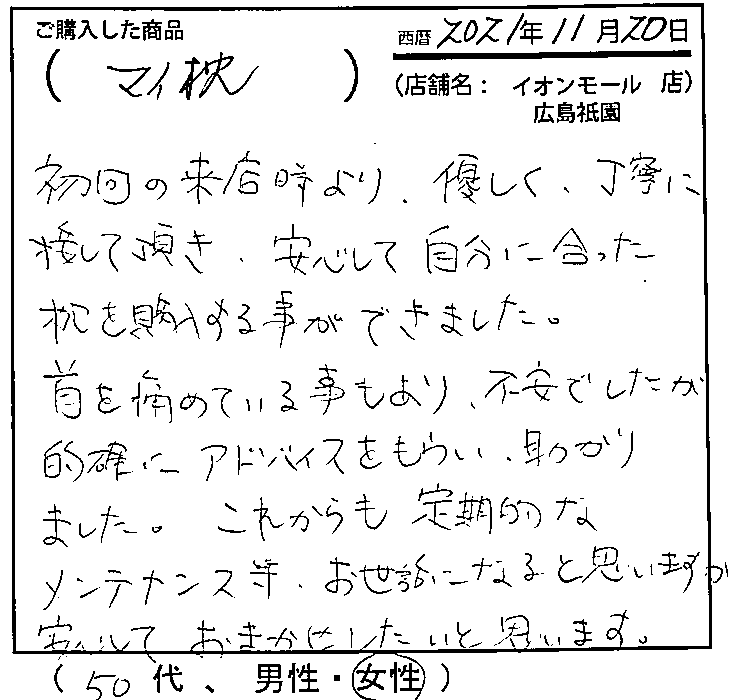 ご購入した商品
西暦 2021年11月20日
( マイ枕 )
(店舗名: イオンモール 店)
広島祇園
初回の来店時より、優しく、丁寧に
接して頂き、安心して自分に合った
枕を購入する事ができました。
首を痛めている事もあり、不安でしたが
的確にアドバイスをもらい、助かり
ました。これからも定期的な
メンテナンス等、お世話になると思いますが
安心しておまかせしたいと思います。
( 50代、男性・女性 )